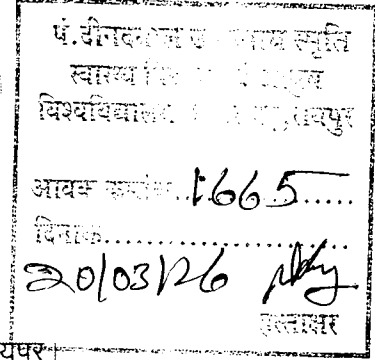 पं.दीनदयाल उपाध्याय स्मृति
स्वास्थ्य
विश्वविद्यालय रायपुर
आवक क्रमांक..1665.....
दिनांक......................
20/03/26
हस्ताक्षर